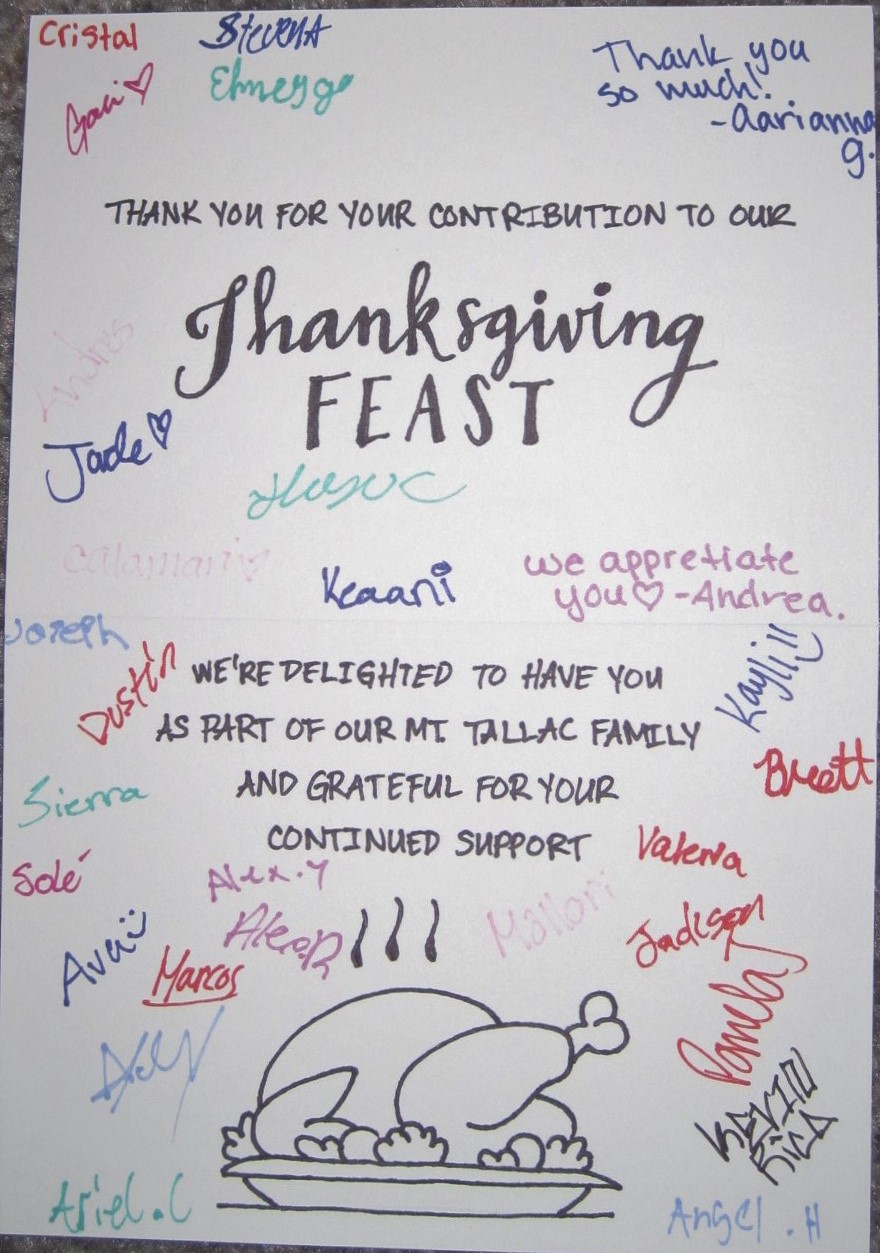 Cristal
Steven A
Thank you
so much!
-Aarianna
g.
THANK YOU FOR YOUR CONTRIBUTION TO OUR
Thanksgiving
FEAST
Andres
Jade
Calamari
Keaani
we appretiate
you -Andrea.
Joseph
Dustin
WE'RE DELIGHTED TO HAVE YOU
AS PART OF OUR MT TALLAC FAMILY
Kayli
AND GRATEFUL FOR YOUR
Brett
Sierra
CONTINUED SUPPORT
Valeria
Solé
Alex.Y
Mallori
Jadison
Ava
Marcos
Pamela
KEVIN
RICO
Ariel.C
Angel.H